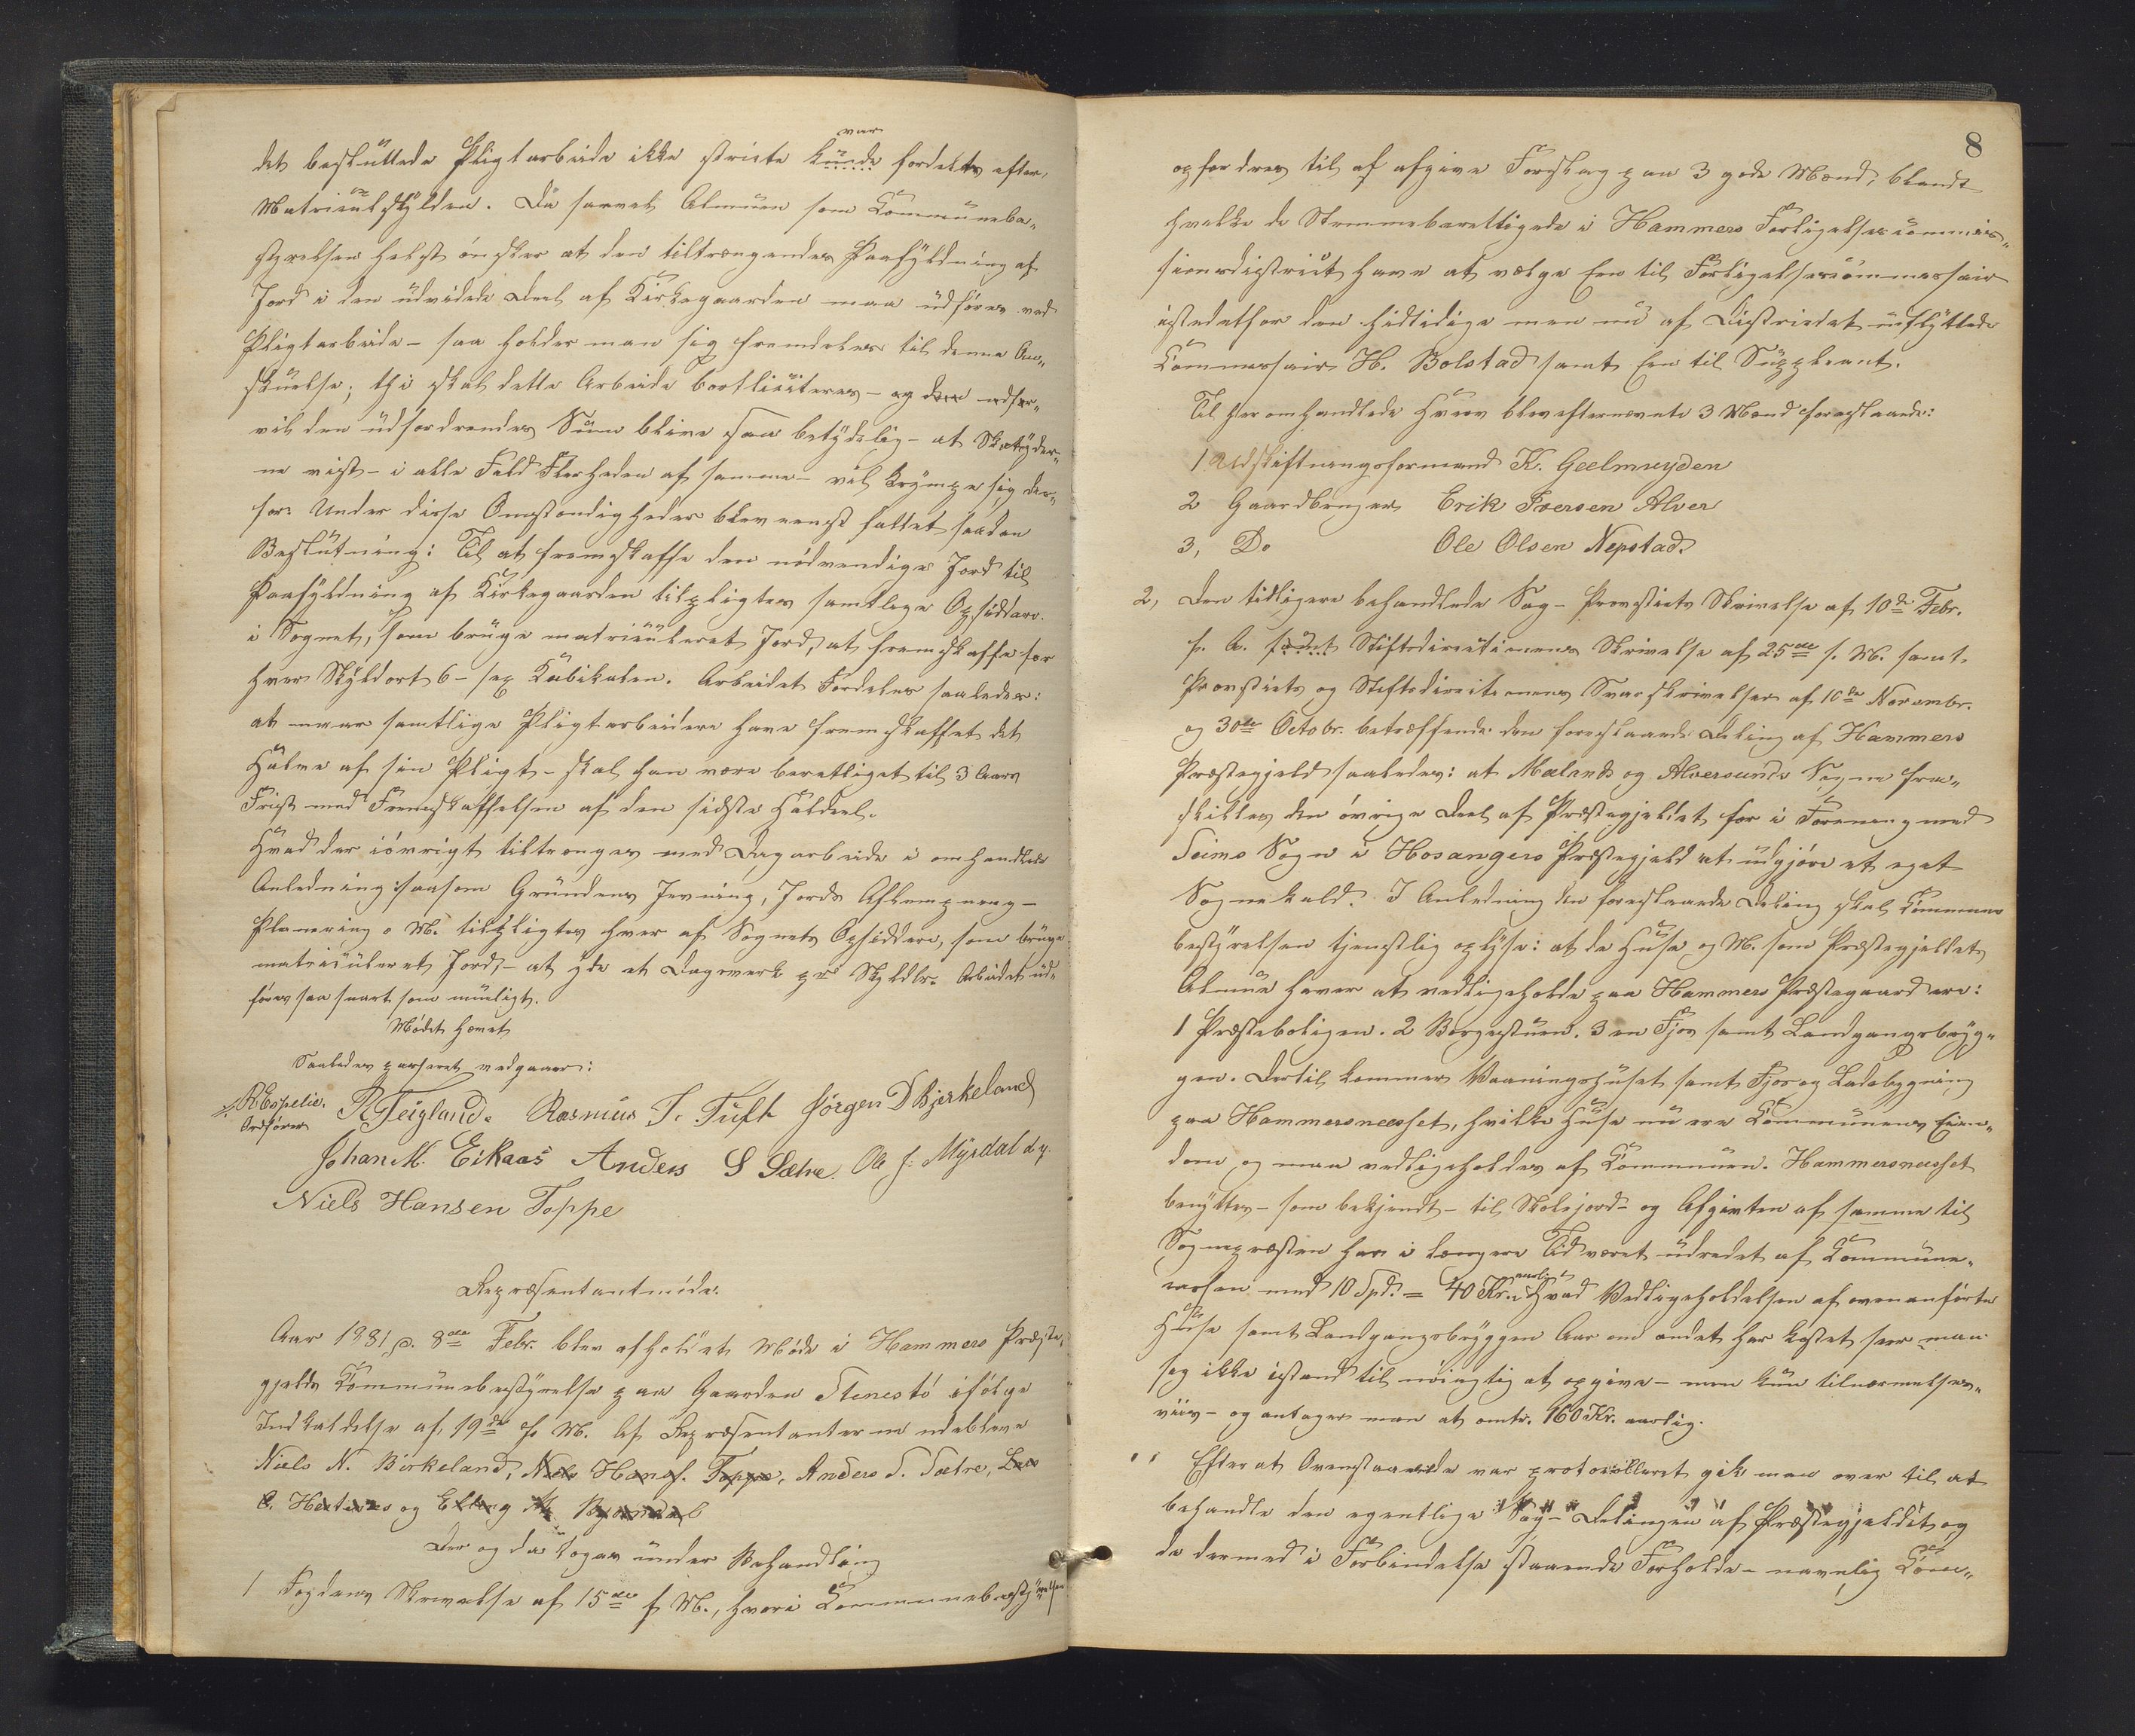 var
det besluttede Pligtarbeide ikke stricte kunde fordeltes efter
Matriculskylden. Da saavel Almuen som Communebe-
styrelsen helst ønsker at den tiltrængendes Paafyldning af
Jord i den udvidede Deel af Kirkegaarden maa udføres ved
Pligtarbeide - saa holder man sig fremdeles til denne An-
skuelse; thi skal dette Arbeide bortliciteres - og
vil den udfordrendes Sum blive saa betydelig - at Skatyder-
ne vist - i alle Fald Flerheden af samme - vil krympe sig der-
for. Under disse Omstændigheder blev eenst. fattet saadan
Beslutning: Til at fremskaffe den nødvendige Jord til
Paafyldning af Kirkegaarden tilpligtes samtlige Opsiddere
i Sognet, som bruge matriculeret Jord, at fremskaffe for
hver Skyldort 6 - sex Kubikalen. Arbeidet Fordeles saaledes:
at naar samtlige Pligtarbeidere have fremskaffet det
Halve af sin Pligt - skal han være berettiget til 3 Aars
Frist med Fremskaffelsen af den sidste Halvdeel.
Hvad der iøvrigt tiltrænges med Dagarbeide i omhandlede
Anledning: saasom Grundens Jevning, Jords Aflempning -
Planering o. M. tilpligtes hver af Sognets Opsiddere, som bruge
matriculeret Jord, - at yde et Dagsverk pr Skyldlr. Arbeidet ud-
føres saa snart som muligt.
Mødet hævet
Saaledes passeret vedgaaes:
R Espelie. P. Teigland. Rasmus T. Tuft Jörgen D Bjerkeland
Ordfører
Johan M. Eikaas Anders S Sætre. Ole J. Myrdal d.y.
Niels Hansen Toppe
Repræsentantmøde.
Aar 1881 d. 8de Febr. blev afholdt et Møde i Hammers Præste-
gjelds Communebestyrelse paa Gaarden Stenestø ifølge
Indkaldelse af 19de f. M. Af Repræsentanterne udebleve
Niels N. Birkeland, Niels Hans. Toppe, Anders S. Sætre, Lars
O. Hertenes og Elling M. Bjørndal
Der og da toges under Behandling
1 Fogdens Skrivelse af 15de f. M., hvori Communebestyrelsen
8
opfordres til af afgive Forslag paa 3 gode Mænd, blandt
hvilke de Stemmeberettigede i Hammers Forligelsescommis-
sionsdistrict have at vælge Een til Forligelsescommissair
istedetfor den hidtidige men nu af Districtet udflyttede
Commissair H. Bolstad samt Een til Suppleant.
Til her omhandlede Hverv blev efternævnte 3 Mænd foreslaaede:
1 Udskiftningsformand K. Geelmuyden
2 Gaardbruger Erik Iversen Alver
3, Do Ole Olsen Nepstad.
2, Den tidligere behandlede Sag - Provstiets Skrivelse af 10de Febr.
f. A. samt Stiftsdirectionens Skrivelse af 25de s. M. samt
Provstiets og Stiftsdirectionens Svarskrivelser af 10de Novembr.
og 30te Octobr. betræffende den foreslaaede Deling af Hammers
Præstegjeld saaledes: at Mælands og Alversunds Sogne fra-
skilles den øvrige Deel af Præstegjeldet for i Forening med
Seims Sogn i Hosangers Præstegjeld at udgjøre et eget
Sognekald. I Anledning den foreslaaede Deling skal Commune
bestyrelsen tjenstlig oplyse: at de Huse o. M. som Præstegjeldets
Almue haver at vedligeholde paa Hammers Præstegaard ere:
1 Præsteboligen. 2 Borgestuen. 3 en Fjøs samt Landgangsbryg-
gen. Dertil kommer Vaaningshuset samt Fjøs og Ladebygning
paa Hammersneesset, hvilke Huse nu ere Communens Eien-
dom og maa vedligeholdes af Communen. Hammersneesset
benyttes - som bekjendt - til Skolejord - og Afgivten af samme til
Sognepræsten har i længere Tid været udredet af Commune-
cassen med 10 Spd. = 40 Kr. aarligt Hvad Vedligeholdelsen af ovenanførte
Huse samt Landgangsbryggen Aar om andet har kostet seer man
sig ikke istand til nøiagtig at opgive - men kun tilnærmelses-
viis - og antager man at omtr. 160 Kr. aarlig.
Efterat Ovenstaaende var protocolleret gik man over til at
behandle den egentlige Sag - Delingen af Præstegjeldet og
de dermed i Forbindelse staaende Forholde - navnlig Com-